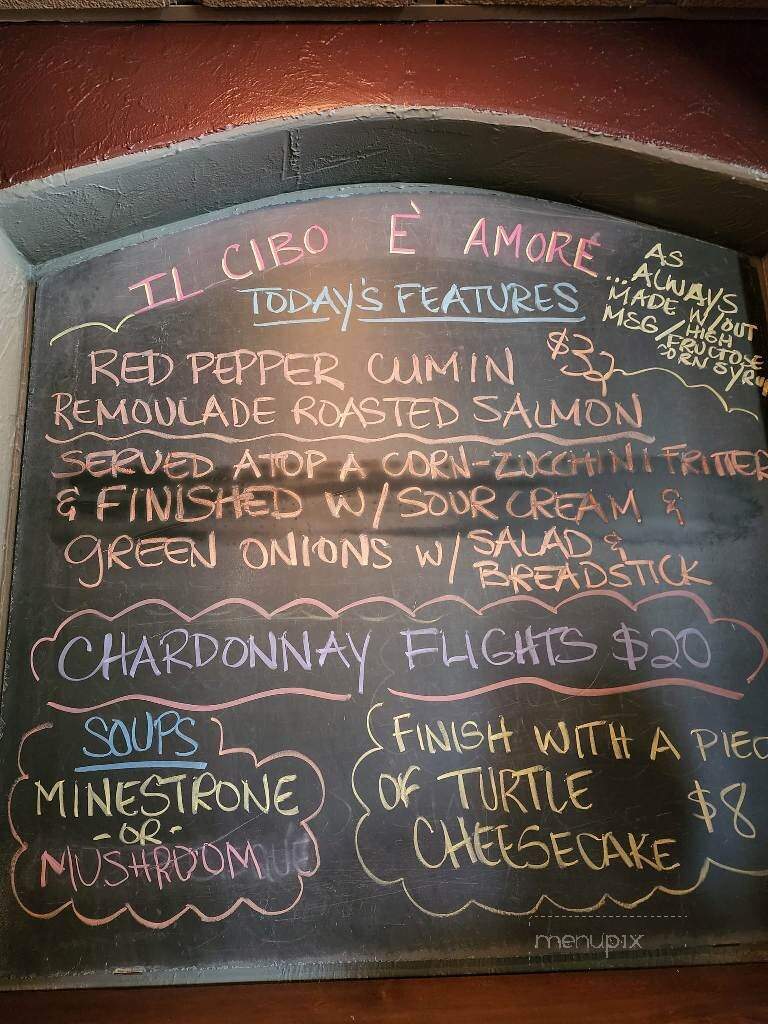 IL CIBO È AMORE
TODAY'S FEATURES
AS
...ALWAYS
MADE W/OUT
MSG/HIGH
FRUCTOSE
CORN SYRUP
RED PEPPER CUMIN $32
REMOULADE ROASTED SALMON
SERVED ATOP A CORN-ZUCCHINI FRITTER
& FINISHED W/SOUR CREAM &
GREEN ONIONS W/SALAD &
BREADSTICK
CHARDONNAY FLIGHTS $20
SOUPS
MINESTRONE
-OR-
MUSHROOM
FINISH WITH A PIEC
OF TURTLE
CHEESECAKE $8
menupix